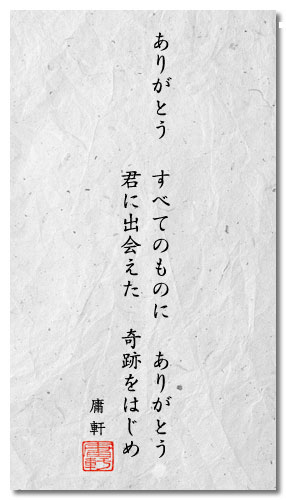 ありがとう　すべてのものに　ありがとう
君に出会えた　奇跡をはじめ
庸軒
庸軒